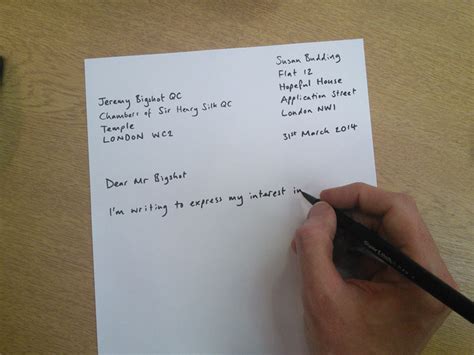 Susan Budding
Flat 12
Hopeful House
Application Street
London NW1
31st March 2014
Jeremy Bigshot QC
Chambers of Sir Henry Silk QC
Temple
LONDON WC2
Dear Mr Bigshot
I'm writing to express my interest in